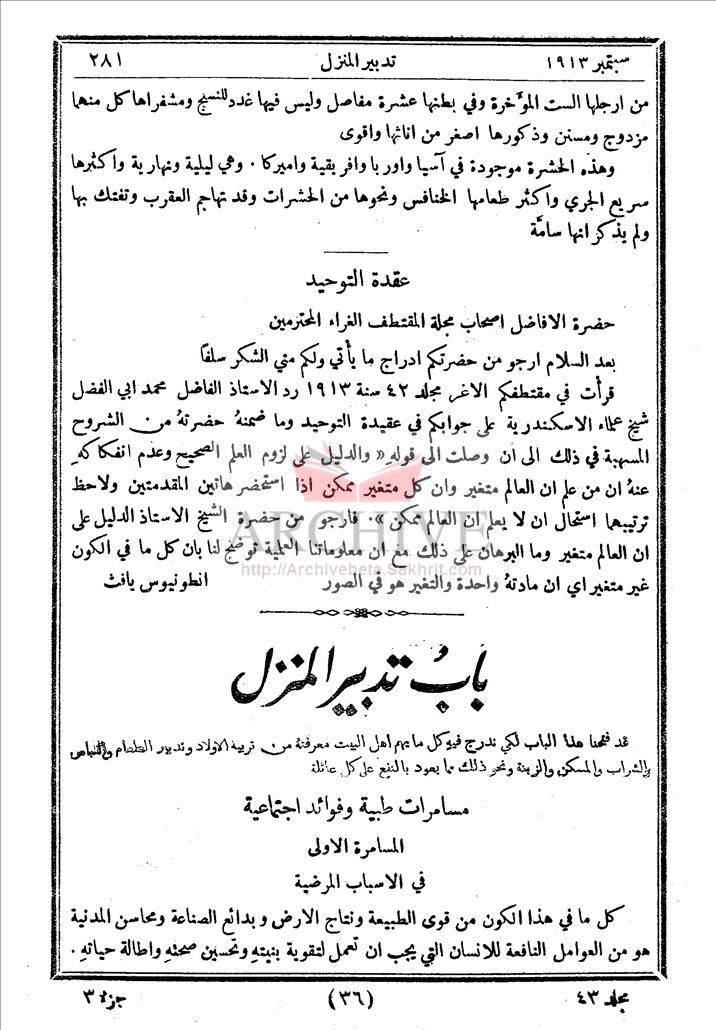 سبتمبر ١٩١٣ تدبير المنزل ٢٨١
من ارجلها الست المؤخرة وفي بطنها عشرة مفاصل وليس فيها غدد للنسج ومشفراها كل منهما
مزدوج ومسنن وذكورها اصغر من اناثها واقوى
وهذه الحشرة موجودة في آسيا واوربا وافريقية واميركا . وهي ليلية ونهارية واكثرها
سريع الجري واكثر طعامها الخنافس ونحوها من الحشرات وقد تهاجم العقرب وتفتك بها
ولم يذكر انها سامَّة
عقدة التوحيد
حضرة الافاضل اصحاب مجلة المقتطف الغراء المحترمين
بعد السلام ارجو من حضرتكم ادراج ما يأتي ولكم مني الشكر سلفًا
قرأت في مقتطفكم الاغر مجلد ٤٢ سنة ١٩١٣ رد الاستاذ الفاضل محمد ابي الفضل
شيخ علماء الاسكندرية على جوابكم في عقيدة التوحيد وما ضمنهُ حضرتهُ من الشروح
المسهبة في ذلك الى ان وصلت الى قولهِ « والدليل على لزوم العلم الصحيح وعدم انفكاكهِ
عنهُ ان من علم ان العالم متغير وان كل متغير ممكن اذا استحضر هاتين المقدمتين ولاحظ
ترتيبهما استحال ان لا يعلم ان العالم ممكن ». فارجو من حضرة الشيخ الاستاذ الدليل على
ان العالم متغير وما البرهان على ذلك مع ان معلوماتنا العلمية توضح لنا بان كل ما في الكون
غير متغير اي ان مادتهُ واحدة والتغير هو في الصور انطونيوس يافث
ARCHIVE
http://Archivebeta.Sakhrit.com
بابُ تدبير المنزل
قد فتحنا هذا الباب لكي ندرج فيهِ كل ما يهم اهل البيت معرفتهُ من تربية الاولاد وتدبير الطعام واللباس
والشراب والمسكن والزينة ونحو ذلك مما يعود بالنفع على كل عائلة
مسامرات طبية وفوائد اجتماعية
المسامرة الاولى
في الاسباب المرضية
كل ما في هذا الكون من قوى الطبيعة ونتاج الارض وبدائع الصناعة ومحاسن المدنية
هو من العوامل النافعة للانسان التي يجب ان تعمل لتقوية بنيتهِ وتحسين صحتهِ واطالة حياتهِ .
مجلد ٤٣ (٣٦) جزء ٣